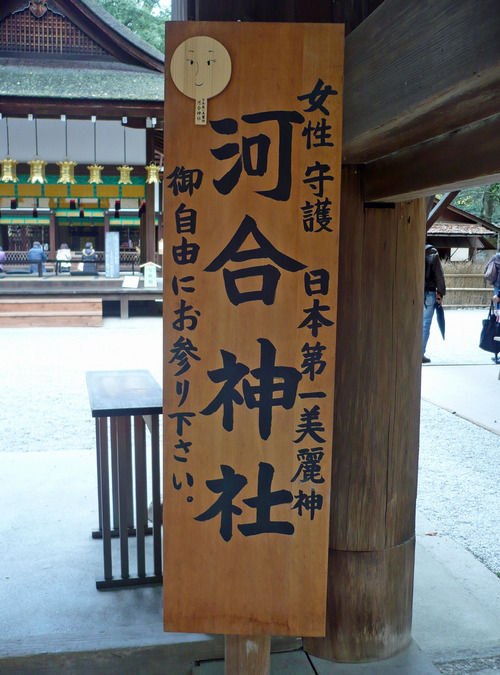 女性守護　日本第一美麗神
河合神社
御自由にお参り下さい。